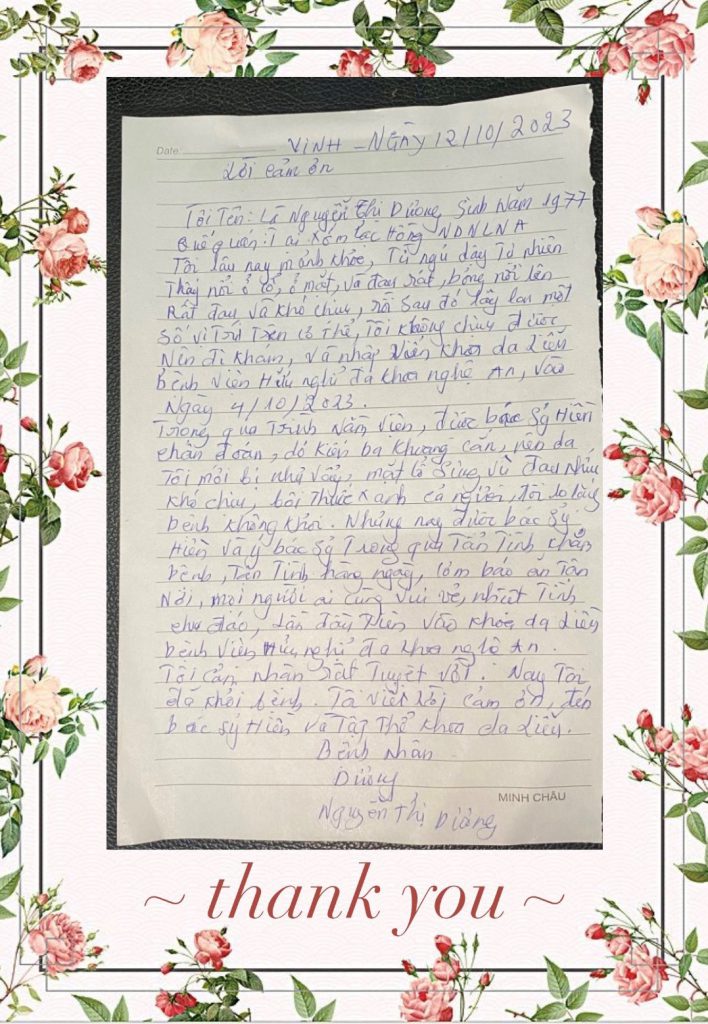 Date:
VINH - NGÀY 12/10/2023
Lời cảm ơn
Tôi Tên: Là Nguyễn Thị Dương Sinh Năm 1977
Quê quán: Tại xóm Lạc Hồng NDNLNA
Tôi lâu nay mạnh khỏe, Tự ngủ dậy Tự nhiên
Thấy nổi ở cổ, ở mắt, và đau rát, bỏng nổi lên
Rất đau và khó chịu, rồi sau đó lây lan một
Số vị Trí Trên cơ thể, Tôi không chịu được
Nên đi khám, và nhập viện khoa da liễu
bệnh viện Hữu nghị đa khoa nghệ An, vào
Ngày 4/10/2023.
Trong quá Trình Nằm viện, được bác Sỹ Hiền
chẩn đoán, dó kiến ba khoang cắn, nên da
Tôi mới bị như vậy, mặt cổ sưng vù đau nhức
khó chịu, bôi thuốc xanh cả người, tôi lo lắng
bệnh không khỏi. Nhưng nay được bác Sỹ
Hiền và y bác Sỹ Trong khoa Tận Tình chăm
bệnh, Tận Tình hàng ngày, cơm báo ăn Tận
Nơi, mọi người ai cũng vui vẻ, nhiệt Tình
chu đáo, lần đầu Tiên vào khoa da liễu
bệnh viện Hữu nghị đa khoa nghệ An.
Tôi cảm nhận rất Tuyệt vời. Nay Tôi
đã khỏi bệnh. Tôi viết lời cảm ơn, đến
bác sỹ Hiền và Tập Thể khoa da liễu.
Bệnh nhân
Dương
MINH CHÂU
Nguyễn Thị Dương
~ thank you ~